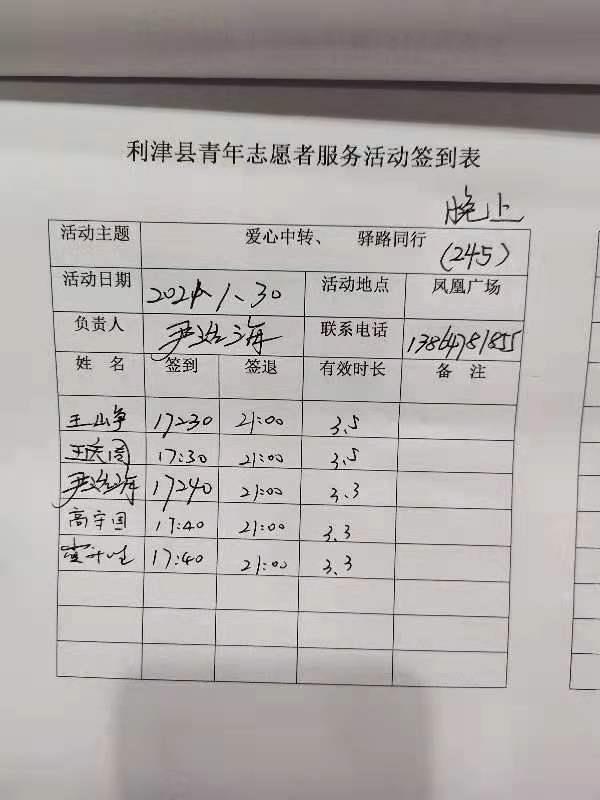 利津县青年志愿者服务活动签到表
晚上
活动主题 爱心中转、 驿路同行 (245)
活动日期 2021.1.30 活动地点 凤凰广场
负责人 尹治海 联系电话 13864781855
姓 名 签到 签退 有效时长 备 注
王山争 17:30 21:00 3.5
17:30 21:00 3.5
尹治海 17:40 21:00 3.3
高守国 17:40 21:00 3.3
17:40 21:00 3.3